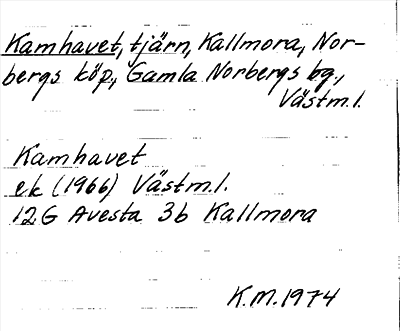 Kamhavet, tjärn, Kallmora, Nor-
bergs köp., Gamla Norbergs bg.,
Västm.l.
Kamhavet
ek (1966) Västm.l.
12G Avesta 3b Kallmora
K.M.1974